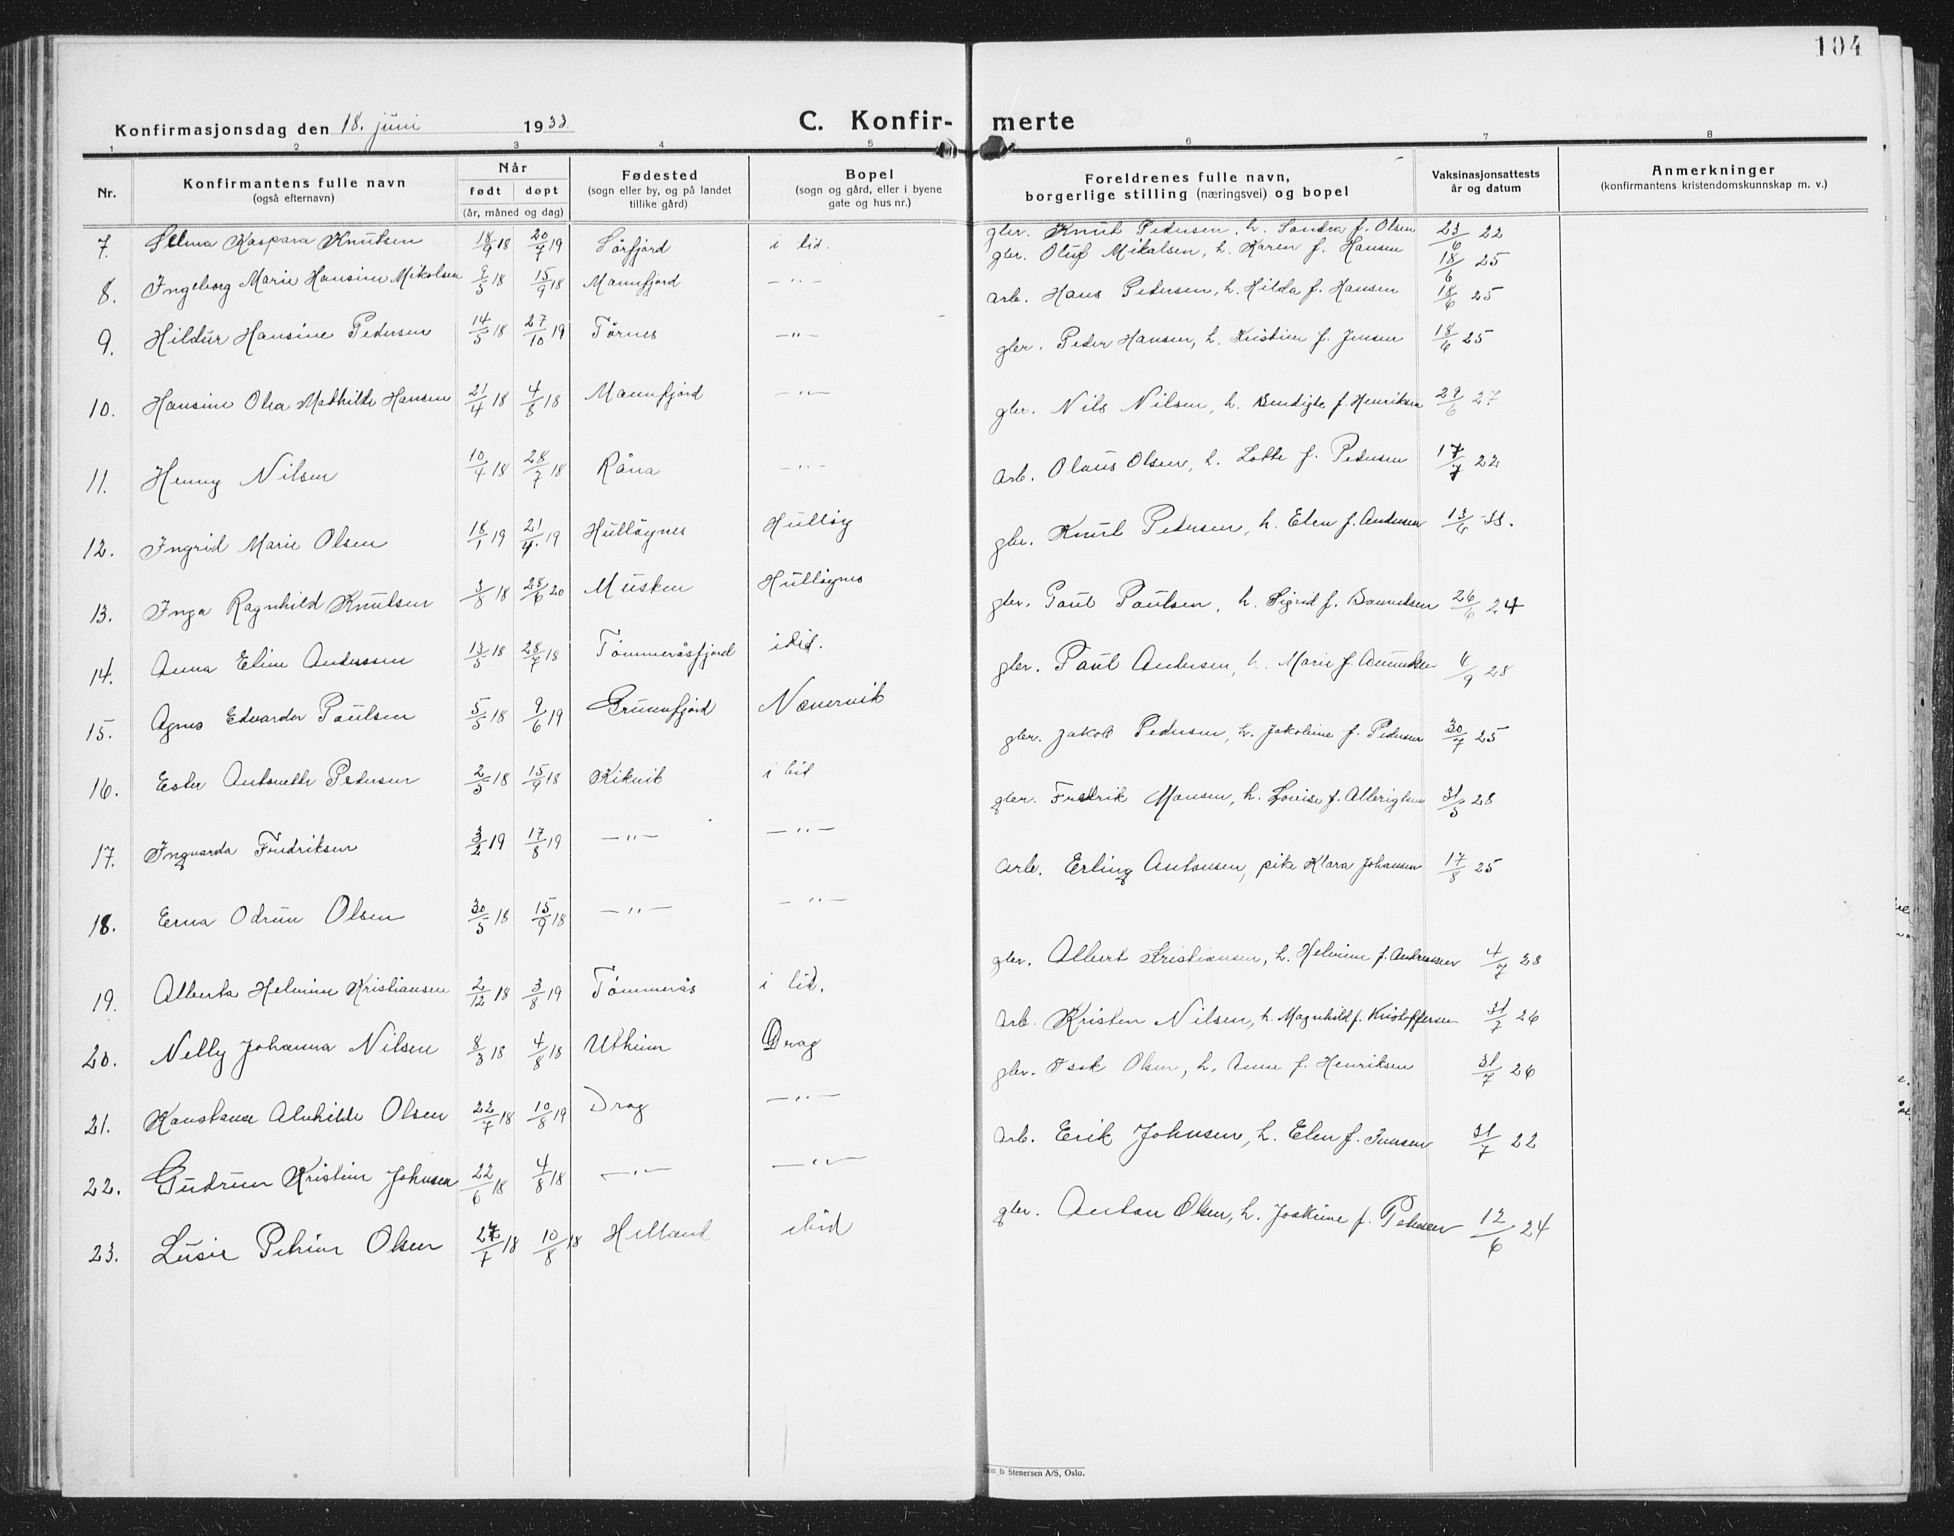 104
Konfirmasjonsdag den 18. juni 1933
C. Konfir- merte
1 2 3 4 5 6 7 8
Nr. Konfirmantens fulle navn (også efternavn) Når født døpt (år, måned og dag) Fødested (sogn eller by, og på landet tillike gård) Bopel (sogn og gård, eller i byene gate og hus nr.) Foreldrenes fulle navn, borgerlige stilling (næringsvei) og bopel Vaksinasjonsattests år og datum Anmerkninger (konfirmantens kristendomskunnskap m. v.)
7. Selma Kaspara Knutsen 18/9 18 20/7 19 Sörfjord i bid. gbr. Knut Pedersen, h. Sandra f. Olsen 23/6 22
8. Ingeborg Marie Hansine Mikalsen 9/5 18 15/9 18 Mannfjord —"— gbr. Oluf Mikalsen, h. Karen f. Hansen 18/6 25
9. Hildur Hansine Pedersen 14/5 18 27/10 19 Tørnes —"— arb. Hans Pedersen, h. Hilda f. Hansen 18/6 25
10. Hansine Olea Mathilde Hansen 21/4 18 4/8 18 Mannfjord —"— gbr. Peder Hansen, h. Kristine f. Jensen 18/6 25
11. Henny Nilsen 10/4 18 28/7 18 Råna —"— gbr. Nils Nilsen, h. Bendigte f. Henriksen 29/6 27
12. Ingrid Marie Olsen 18/1 19 21/4 19 Hulløynes Hulløy Arb. Olaus Olsen, h. Lotte f. Pedersen 17/7 22
13. Inga Ragnhild Knutsen 3/8 18 28/6 20 Musken Hulløynes gbr. Knut Pedersen, h. Elen f. Andersen 13/6 33.
14. Anna Eline Andersen 13/5 18 28/7 18 Tømmeråsfjord ibid. gbr. Paul Paulsen, h. Sigrid f. 26/6 24
15. Agnes Edvarda Paulsen 5/5 18 9/6 19 Grunnfjord Nævervik gbr. Paul Andersen, h. Marie f. Amundsen 4/9 28
16. Ester Antonette Pedersen 2/5 18 15/9 18 Kikvik i bid gbr. Jakob Pedersen, h. Jakobine f. Pedersen 30/7 25
17. Ingvarda Fredriksen 3/2 19 17/8 19 —"— —"— gbr. Fredrik Monsen, h. Lovise f. 31/5 28
18. Erna Odrun Olsen 30/5 18 15/9 18 —"— —"— arb. Erling Antonsen, pike Klara Johansen 17/8 25
19. Alberta Helmine Kristiansen 2/12 18 3/8 19 Tømmerås i bid. gbr. Albert Kristiansen, h. Helmine f. Andreassen 4/7 28
20. Nelly Johanna Nilsen 8/3 18 4/8 18 Utheim Drag Arb. Kristen Nilsen, h. Magnhild f. Kristoffersen 31/7 26
21. Konstanse Alvhilde Olsen 22/7 18 10/8 19 Drag —"— gbr. Isak Olsen, h. Anne f. Henriksen 31/7 26
22. Gudrun Kristine Johnsen 22/6 18 4/8 18 —"— —"— Arb. Erik Johnsen, h. Elen f. Jensen 31/7 22
23. Lusie Petrine Olsen 27/7 18 10/8 18 Helland ibid gbr. Anton Olsen, h. Joakime f. Pedersen 12/6 24
Stenersen A/S, Oslo.